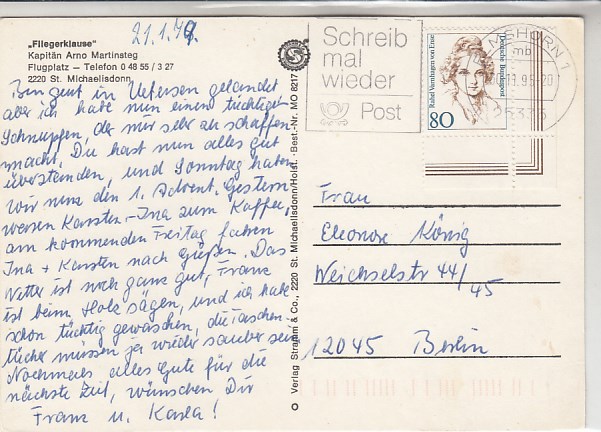 „Fliegerklause"
Kapitän Arno Martinsteg
Flugplatz — Telefon 0 48 55 / 3 27
2220 St. Michaelisdonn
21.1.
Bin gut in Uetersen gelandet
aber ich habe nun einen tüchtigen
Schnupfen, der mir sehr zu schaffen
macht. Du hast nun alles gut
überstanden, und Sonntag haben
wir nun den 1. Advent. Gestern
waren Karsten - Ina zum Kaffee,
am kommenden Freitag fahren
Ina + Karsten nach Gießen. Das
Wetter ist noch ganz gut, Franz
ist beim Holz sägen, und ich habe
schon tüchtig gewaschen, die Taschen-
tücher müssen ja wieder sauber sein
Nochmals alles Gute für die
nächste Zeit, wünschen Dir
Franz u. Karla!
Verlag Stramm & Co., 2220 St. Michaelisdonn/Holst. - Best.-Nr. MO 8217
Schreib
mal
wieder
Post
Rahel Varnhagen von Ense
Deutsche Bundespost
80
MSHORN 1
mb
25335
Frau
Eleonore König
Weichselstr 44/
45
12045 Berlin